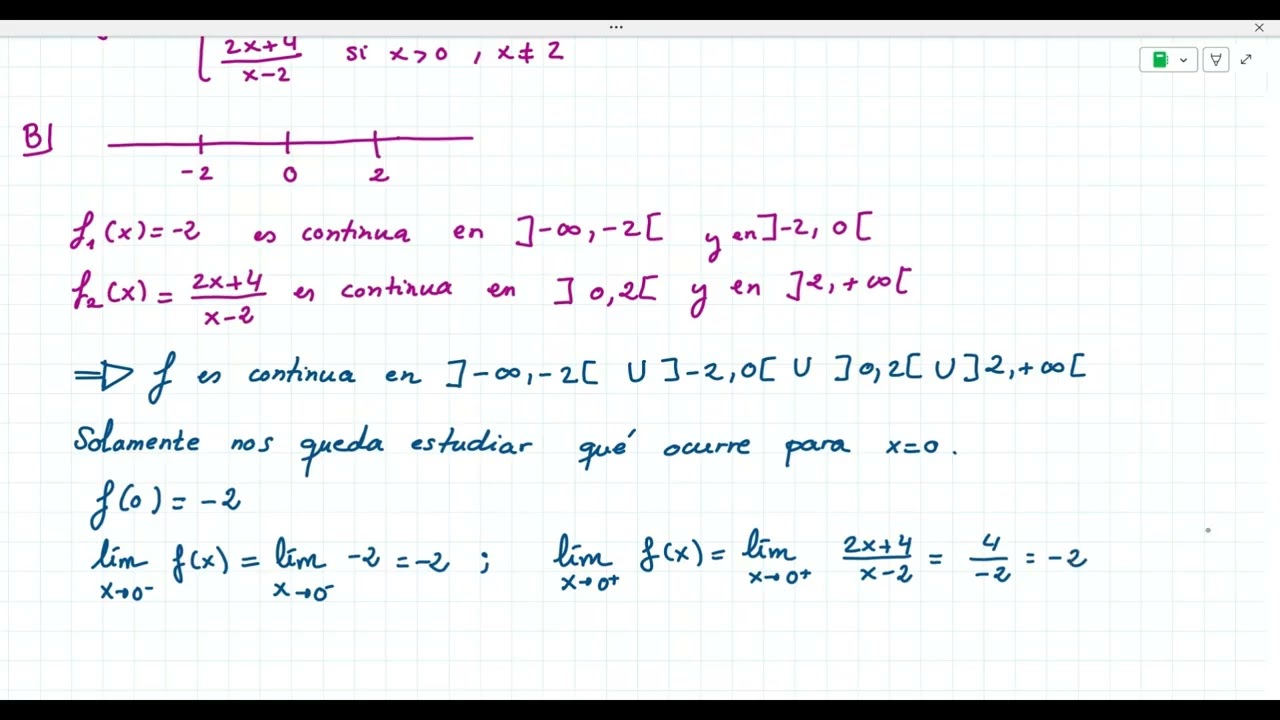 2x+4/x-2 si x>0 , x≠2
B)
-2 0 2
f₁(x)=-2 es continua en ]-∞,-2[ y en ]-2, 0[
f₂(x) = 2x+4/x-2 es continua en ]0,2[ y en ]2,+∞[
⇒ f es continua en ]-∞,-2[ ∪ ]-2,0[ ∪ ]0,2[ ∪ ]2,+∞[
Solamente nos queda estudiar qué ocurre para x=0.
f(0) = -2
lím x→0⁻ f(x) = lím x→0⁻ -2 = -2 ; lím x→0⁺ f(x) = lím x→0⁺ 2x+4/x-2 = 4/-2 = -2